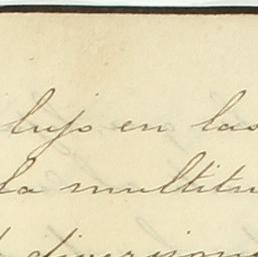 lujo en las
la multitu
diversione